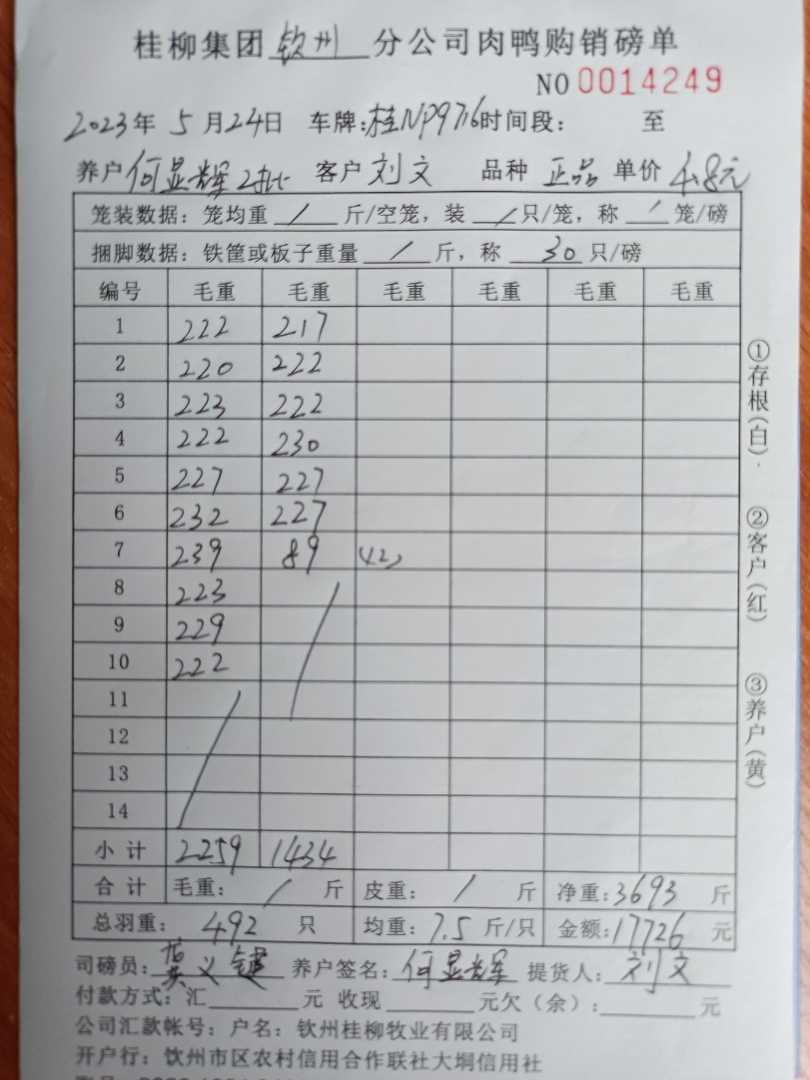 桂柳集团钦州分公司肉鸭购销磅单
NO 0014249
2023年5月24日 车牌:桂NP9716时间段: 至
养户何显辉2批 客户刘文 品种 正品 单价 4.8元
笼装数据:笼均重 / 斤/空笼,装 / 只/笼,称 / 笼/磅
捆脚数据:铁筐或板子重量 / 斤,称 30 只/磅
编号 毛重 毛重 毛重 毛重 毛重 毛重
1 222 217
2 220 222
3 223 222
4 222 230
5 227 227
6 232 227
7 239 89 (12)
8 223
9 229
10 222
11
12
13
14
小计 2259 1434
合计 毛重: / 斤 皮重: / 斤 净重:3693 斤
总羽重: 492 只 均重:7.5 斤/只 金额:17726 元
司磅员:义键 养户签名:何显辉 提货人:刘文
付款方式:汇 元 收现 元欠(余): 元
公司汇款帐号:户名:钦州桂柳牧业有限公司
开户行:钦州市区农村信用合作联社大垌信用社
①存根(白)
②客户(红)
③养户(黄)